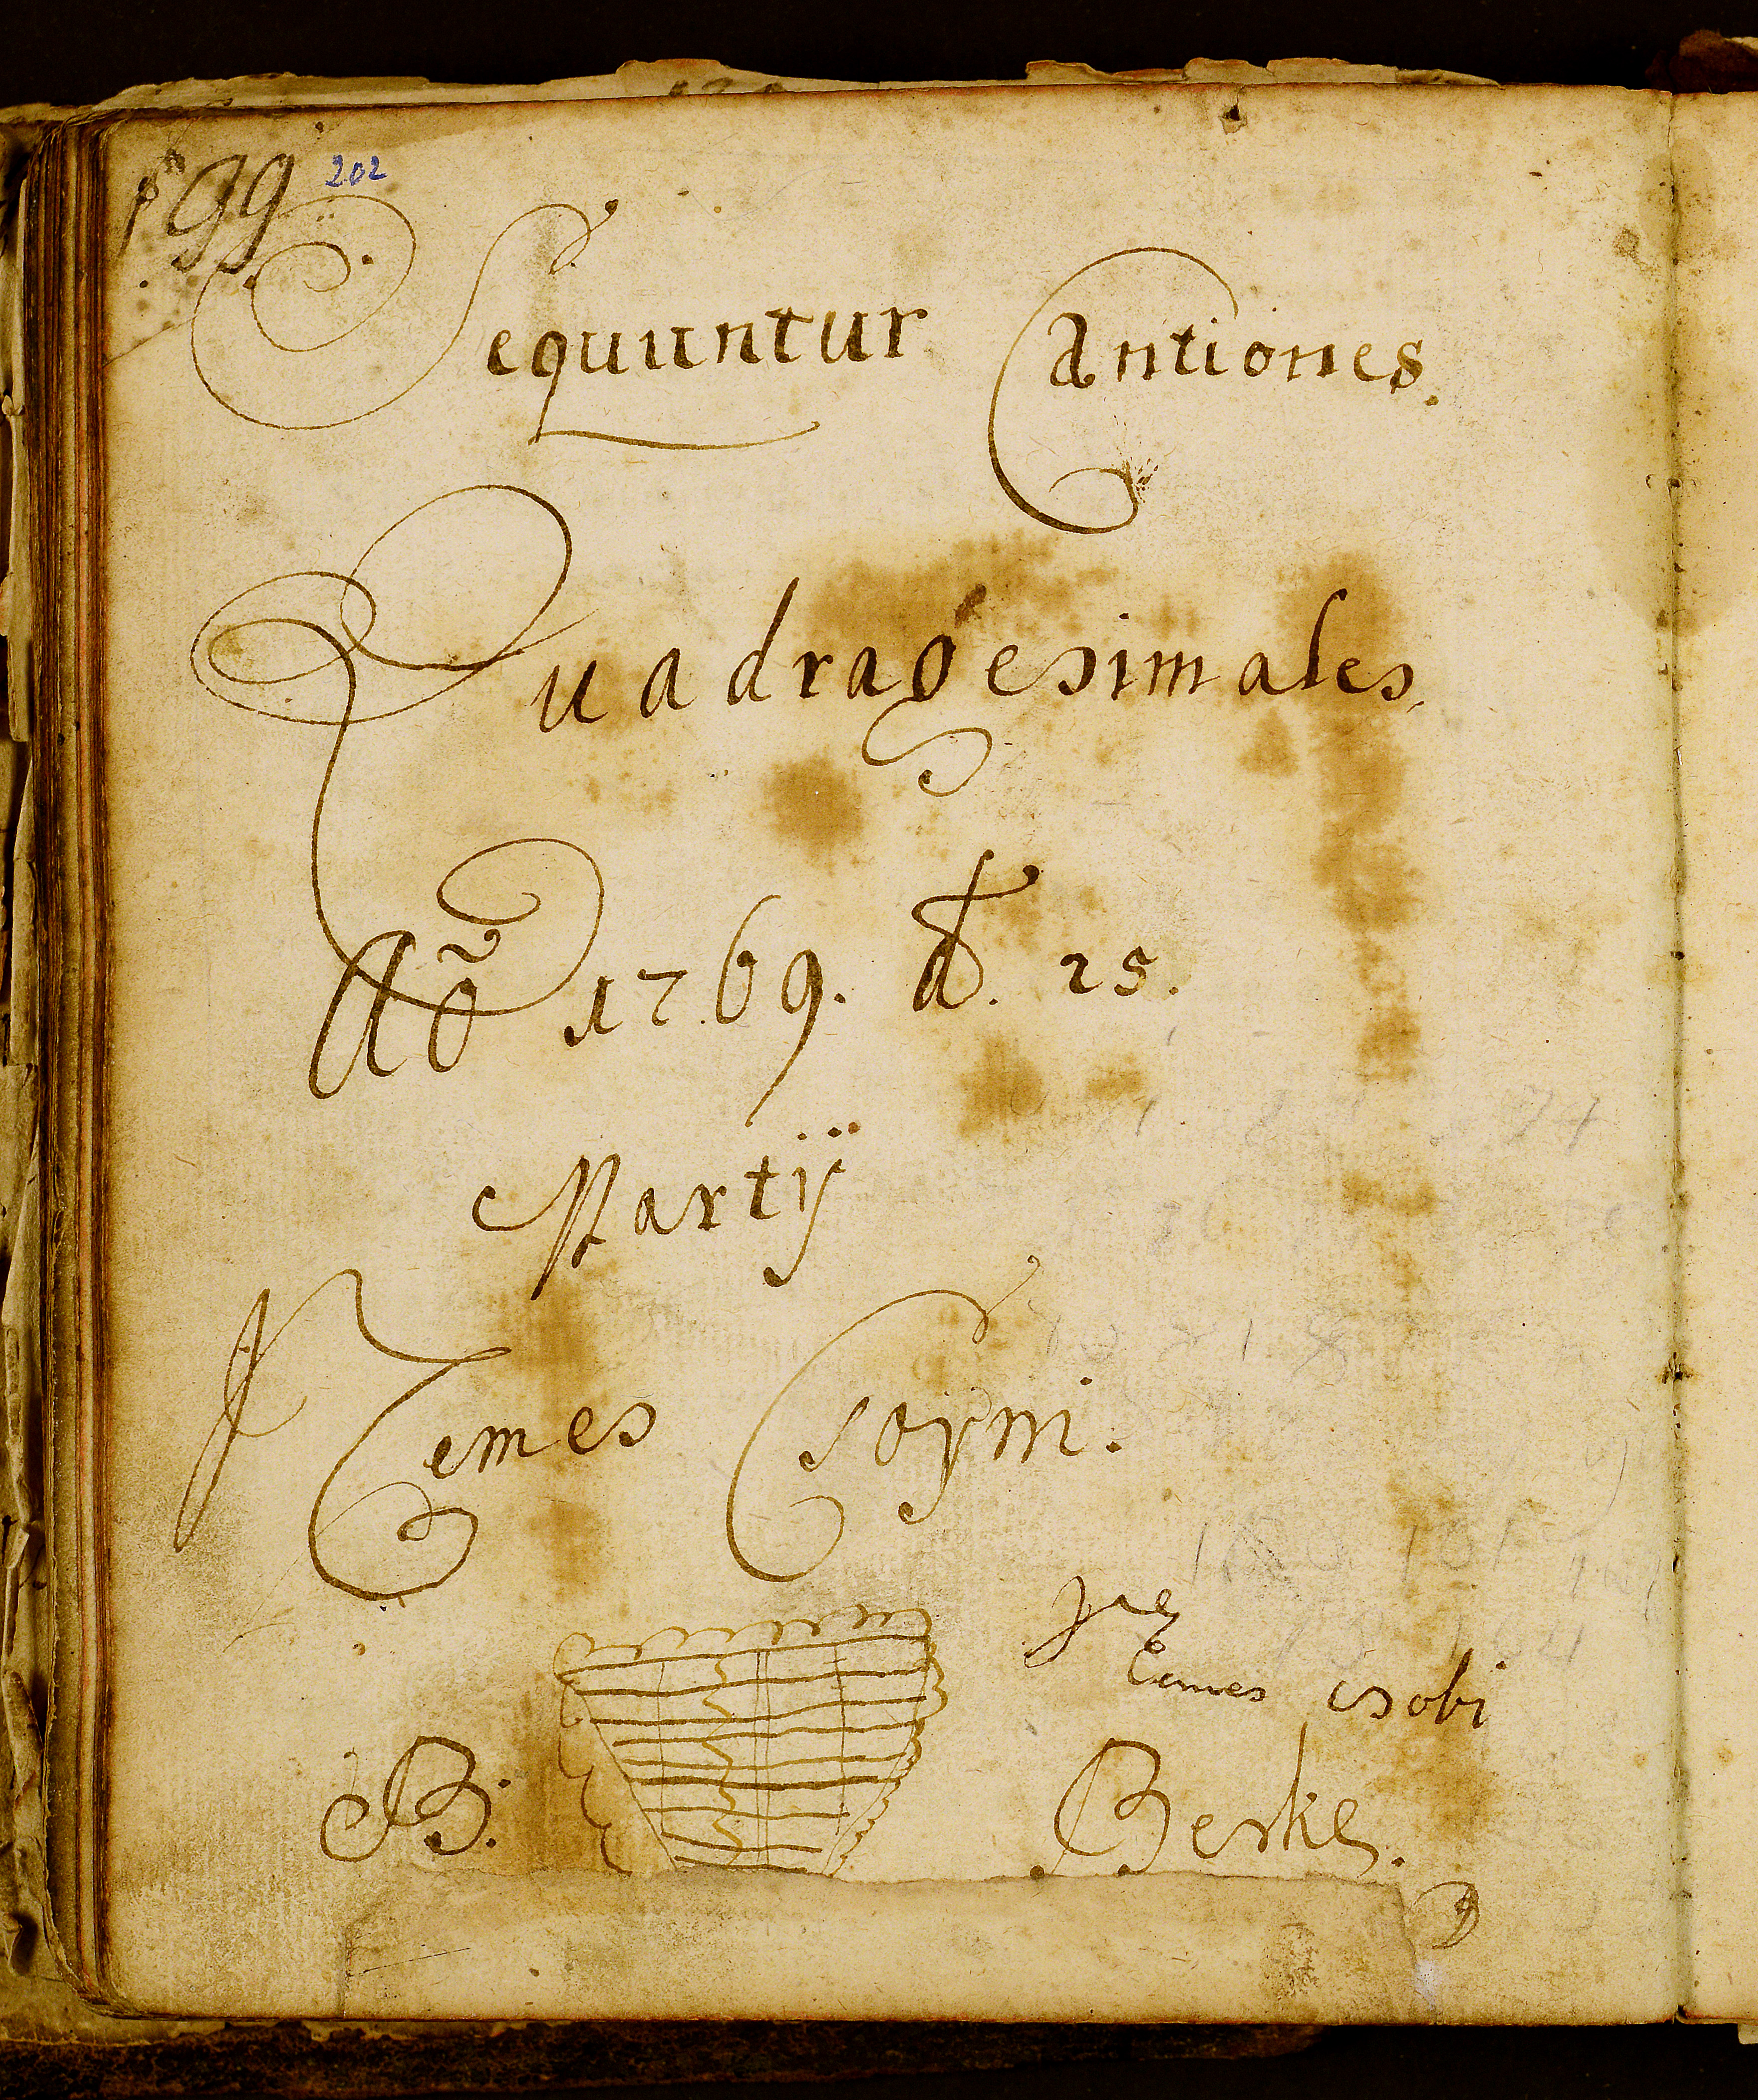 199 202
Sequuntur Cantiones.
Quadragesimales.
Aõ 1769. d. 25.
Martÿ
Nemes Csoÿmi.
isobi
B. Berke.